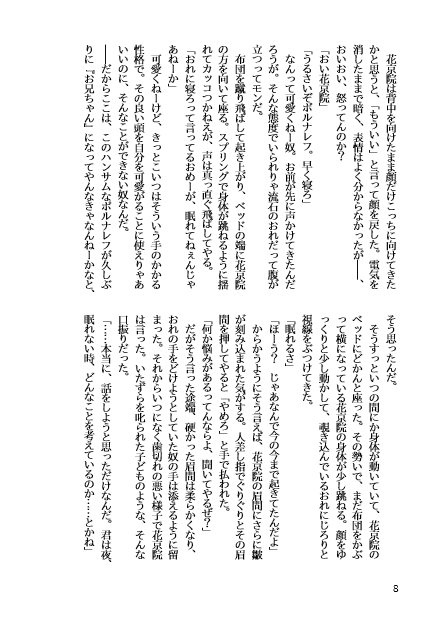 花京院は背中を向けたまま顔だけこっちに向けてきた
かと思うと、「もういい」と言って顔を戻した。電気を
消したままで暗く、表情はよく分からなかったが――、
おいおい、怒ってんのか？
「おい花京院」
「うるさいぞポルナレフ。早く寝ろ」
なんって可愛くねー奴。お前が先に声かけてきたんだ
ろうが。そんな態度でいられりゃ流石のおれだって腹が
立つってモンだ。
布団を蹴り飛ばして起き上がり、ベッドの端に花京院
の方を向いて座る。スプリングで身体が跳ねるように揺
れてカッコつかねえが、声は真っ直ぐ飛ばしてやる。
「おれに寝ろって言ってるおめーが、眠れてねぇんじゃ
あねーか」
可愛くねーけど、きっとこいつはそういう手のかかる
性格で。その良い頭を自分を可愛がることに使えりゃあ
いいのに、そんなことができない奴なんだ。
――だからここは、このハンサムなポルナレフが久しぶ
りに『お兄ちゃん』になってやんなきゃなんねーかなと、
そう思ったんだ。
そうすっといつの間にか身体が動いていて、花京院の
ベッドにどかんと座った。その勢いで、まだ布団をかぶ
って横になっている花京院の身体が少し跳ねる。顔をゆ
っくりと少し動かして、覗き込んでいるおれにじろりと
視線をぶつけてきた。
「眠れるさ」
「ほーう？　じゃあなんで今の今まで起きてたんだよ」
からかうようにそう言えば、花京院の眉間にさらに皺
が刻み込まれた気がする。人差し指でぐりぐりとその眉
間を押してやると「やめろ」と手で払われた。
「何か悩みがあるってんならよ、聞いてやるぜ？」
だがそう言った途端、硬かった眉間は柔らかくなり、
おれの手をどけようとしていた奴の手は添えるように留
まった。それからいつになく歯切れの悪い様子で花京院
は言った。いたずらを叱られた子どものような、そんな
口振りだった。
「……本当に、話をしようと思っただけなんだ。君は夜、
眠れない時、どんなことを考えているのか……とかね」
8